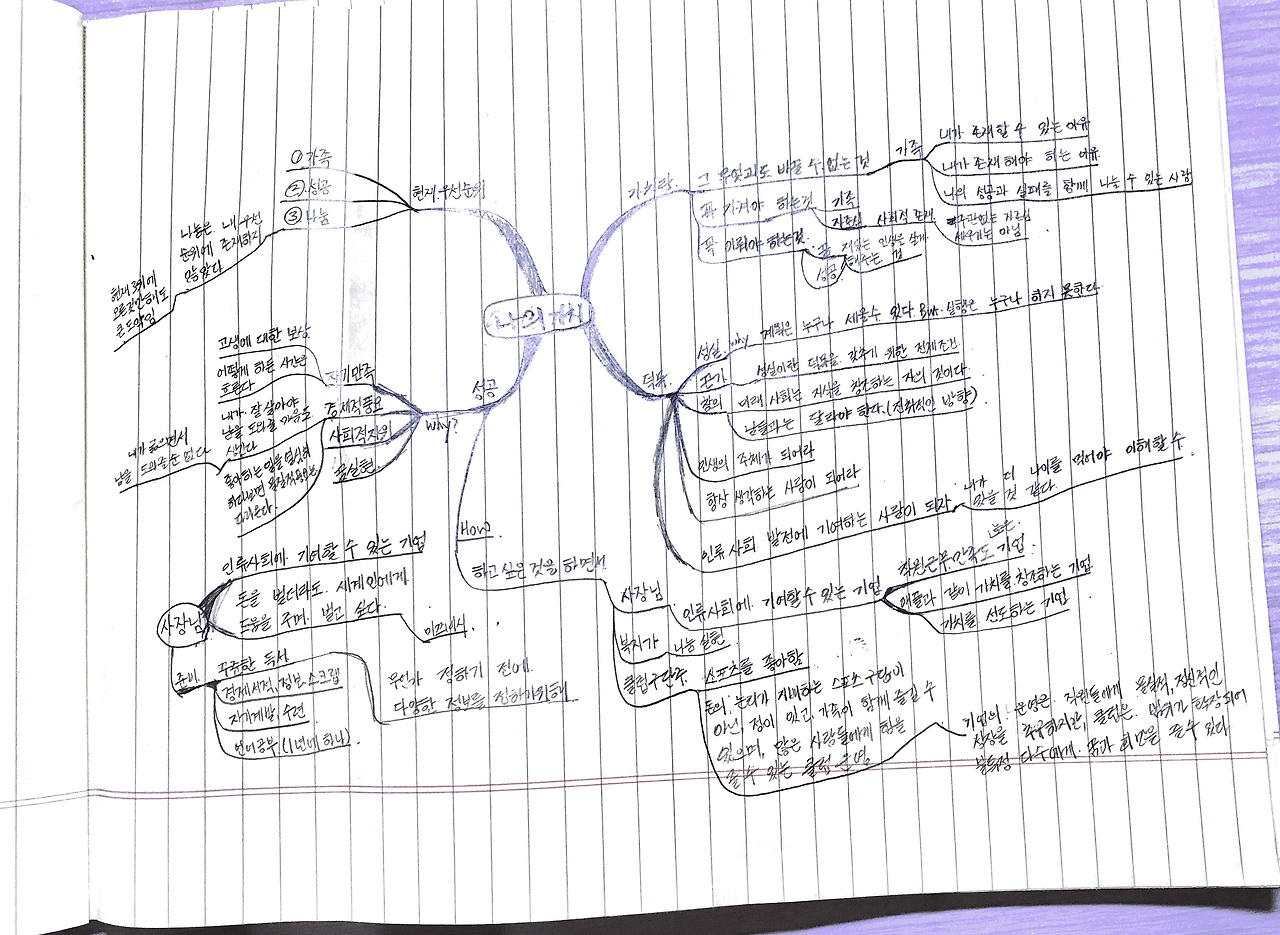 나의 가치
현재 우선순위
① 가족
② 성공
③ 나눔
나눔은 내 우선
순위에 존재하지
않았다
현재 3위에
오른것만해도
큰 도약임
가치란
그 무엇과도 바꿀 수 없는 것
가족
내가 존재할 수 있는 이유
내가 존재해야 하는 이유
나의 성공과 실패를 함께 나눌 수 있는 사람
꼭 지켜야 하는것
가족
자존심
사회적 존재
자존심
세우기는 아님
꼭 이뤄야 하는것
꿈
재밌는 인생을 살게
해주는 것
성공
덕목
성실
why
계획은 누구나 세울수 있다. But. 실행은 누구나 하지 못한다.
끈기
성실이란 덕목을 갖추기 위한 전제조건
창의
미래 사회는 지식을 창조하는 자의 것이다.
남들과는 달라야 한다. (전화적인 방향)
인생의 주체가 되어라
항상 생각하는 사람이 되어라
인류 사회 발전에 기여하는 사람이 되자
내가 더 나이를 먹어야 이해할 수
있을 것 같다.
성공
why?
자기만족
고생에 대한 보상
어떻게 하든 시간은
흐른다
경제적풍요
내가 잘 살아야
남을 도와줄 여유도
생긴다
내가 굶으면서
남을 도와줄순 없다
사회적지위
좋아하는 일을 열심히
하다보면
다라온다.
꿈실현
How
하고 싶은 것을 하면서
사장님
인류사회에 기여할수 있는 기업
직원근무만족도 높은 기업
애플과 같이 가치를 창조하는 기업
가치를 선도하는 기업
복지가
나눔 실현
클럽구단주
스포츠를 좋아함
돈의 논리가 지배하는 스포츠 구단이
아닌, 정이 있고, 가족이 함께 즐길 수
있으며, 많은 사람들에게 힘을
줄 수 있는 클럽 운영
기업의 운영은 직원들에게 물질적, 정신적인
성장을 추구하지만, 클럽은 범위가 확장되어
불특정 다수에게 꿈과 희망을 줄 수 있다.
사장님
인류사회에 기여할 수 있는 기업
돈을 벌더라도 세계인에게
도움을 주며 벌고 싶다.
준비
꾸준한 독서
경제서적, 정보스크랩
자기계발, 수련
언어공부 (1년에 하나)
무언가 정하기 전에
다양한 정보를 접하기위해